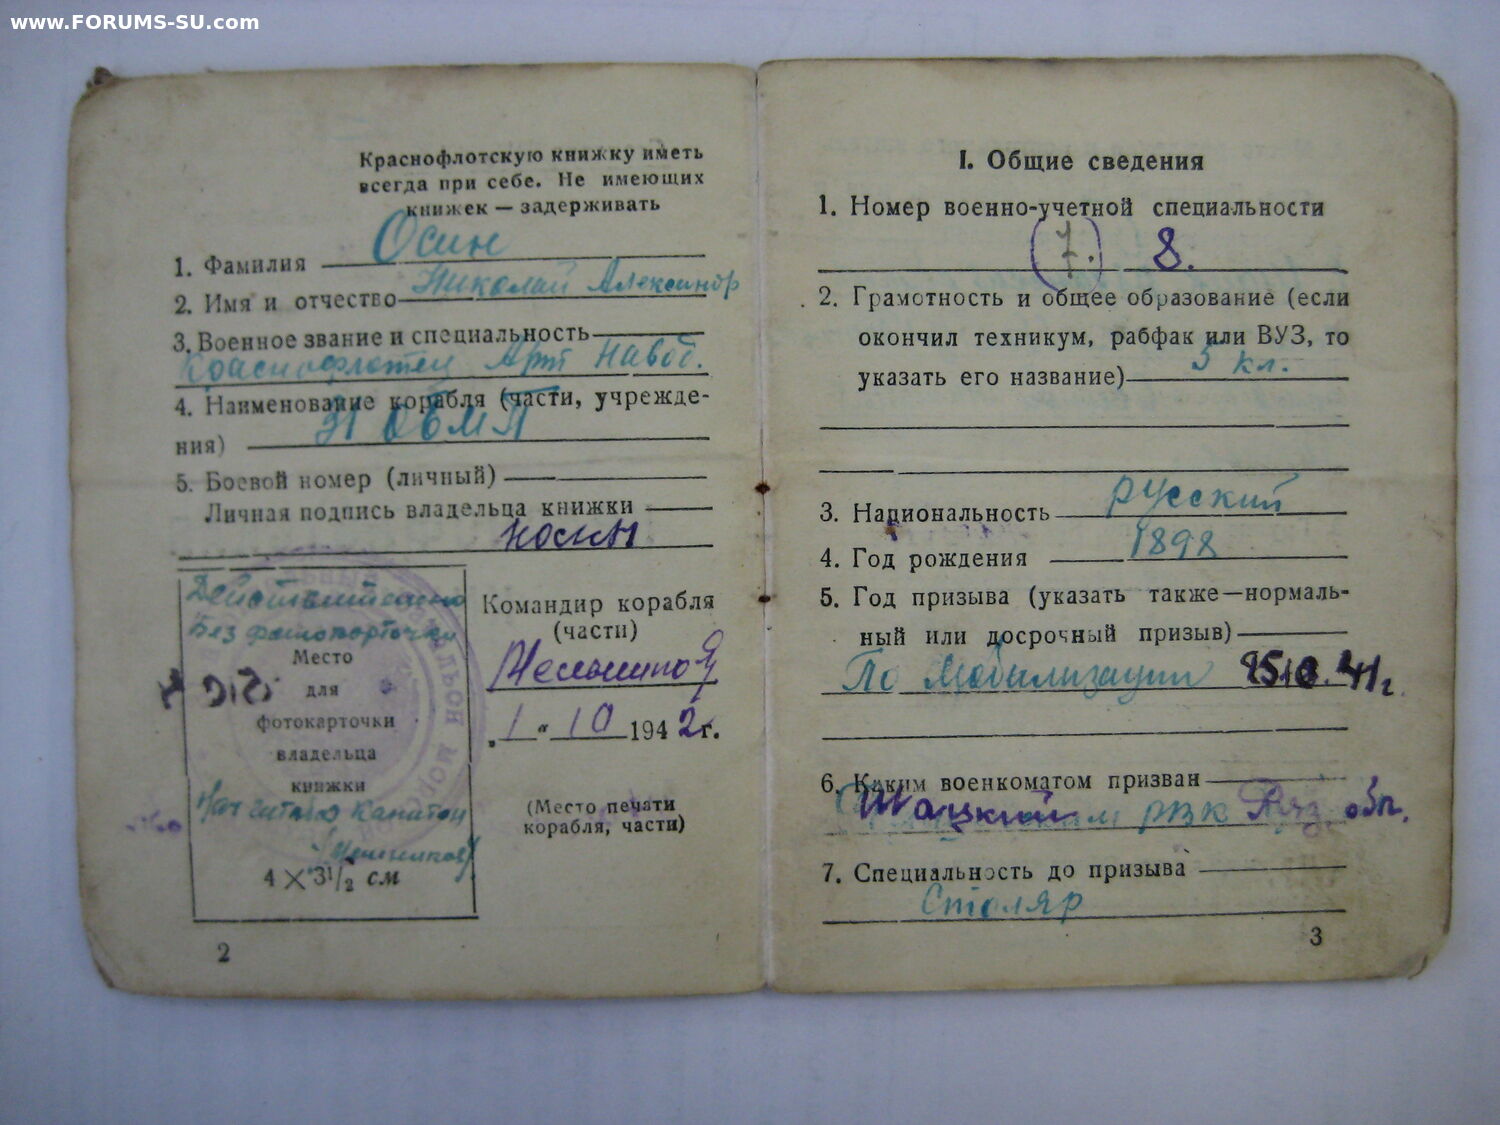 www.FORUMS-SU.com
Краснофлотскую книжку иметь
всегда при себе. Не имеющих
книжек — задерживать
1. Фамилия Осин
2. Имя и отчество Николай Александр
3. Военное звание и специальность
Краснофлотец Арт Навод.
4. Наименование корабля (части, учрежде-
ния) 31 ОБМП
5. Боевой номер (личный)
Личная подпись владельца книжки
Носин
Действительно
без фотокарточки
Место
для
фотокарточки
владельца
книжки
Нач капитан
4 × 3 1/2 см
Командир корабля
(части)
„1“ 10 1942 г.
(Место печати
корабля, части)
2
I. Общие сведения
1. Номер военно-учетной специальности
(7.) 8.
2. Грамотность и общее образование (если
окончил техникум, рабфак или ВУЗ, то
указать его название) 3 кл.
3. Национальность русский
4. Год рождения 1898
5. Год призыва (указать также—нормаль-
ный или досрочный призыв)
По мобилизации 41г.
6. Каким военкоматом призван
Шацким рвк Ряз. обл.
7. Специальность до призыва
Столяр
3